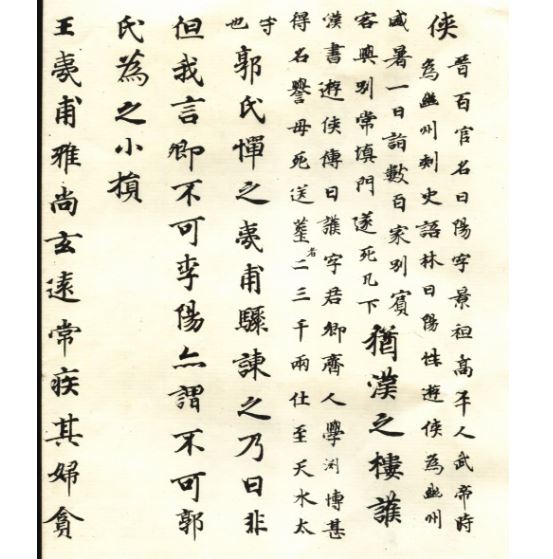 俠
晉百官名曰陽字景祖高平人武帝時
為幽州刺史語林曰陽性遊俠為幽州
盛暑一日詣數百家別賓
客與別常填門遂死凡下
猶漢之樓護
漢書遊俠傳曰護字君卿齊人學渕博甚
得名譽母死送葬者二三千兩仕至天水太
守
也
郭氏憚之夷甫驟諫之乃曰非
但我言卿不可李陽亦謂不可郭
氏為之小損
王夷甫雅尚玄遠常疾其婦貪